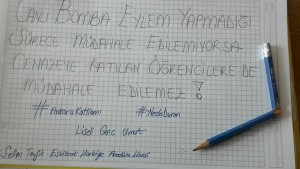 CANLI BOMBA EYLEM YAPMADIĞI
SÜRECE MÜDAHALE EDİLEMİYORSA
CENAZEYE KATILAN ÖĞRENCİLERE DE
MÜDAHALE EDİLEMEZ!
#AnkaraKatliamı #NedaDuran
Liseli Genç Umut
Selim